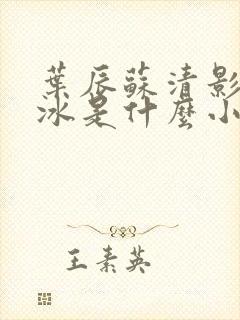 葉辰蘇清影
冰是什麼小
王素英